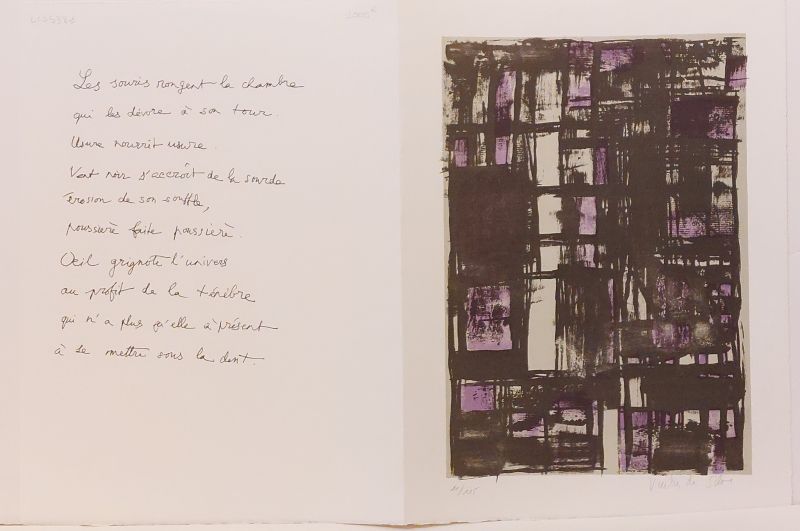 Les souris rongent la chambre
qui les dévore à son tour.
Usure nourrit usure.
Vent noir s'accroît de la sourde
érosion de son souffle,
poussière faite poussière.
Oeil grignote l'univers
au profit de la ténèbre
qui n'a plus qu'elle à présent
à se mettre sous la dent.
Vieira da Silva